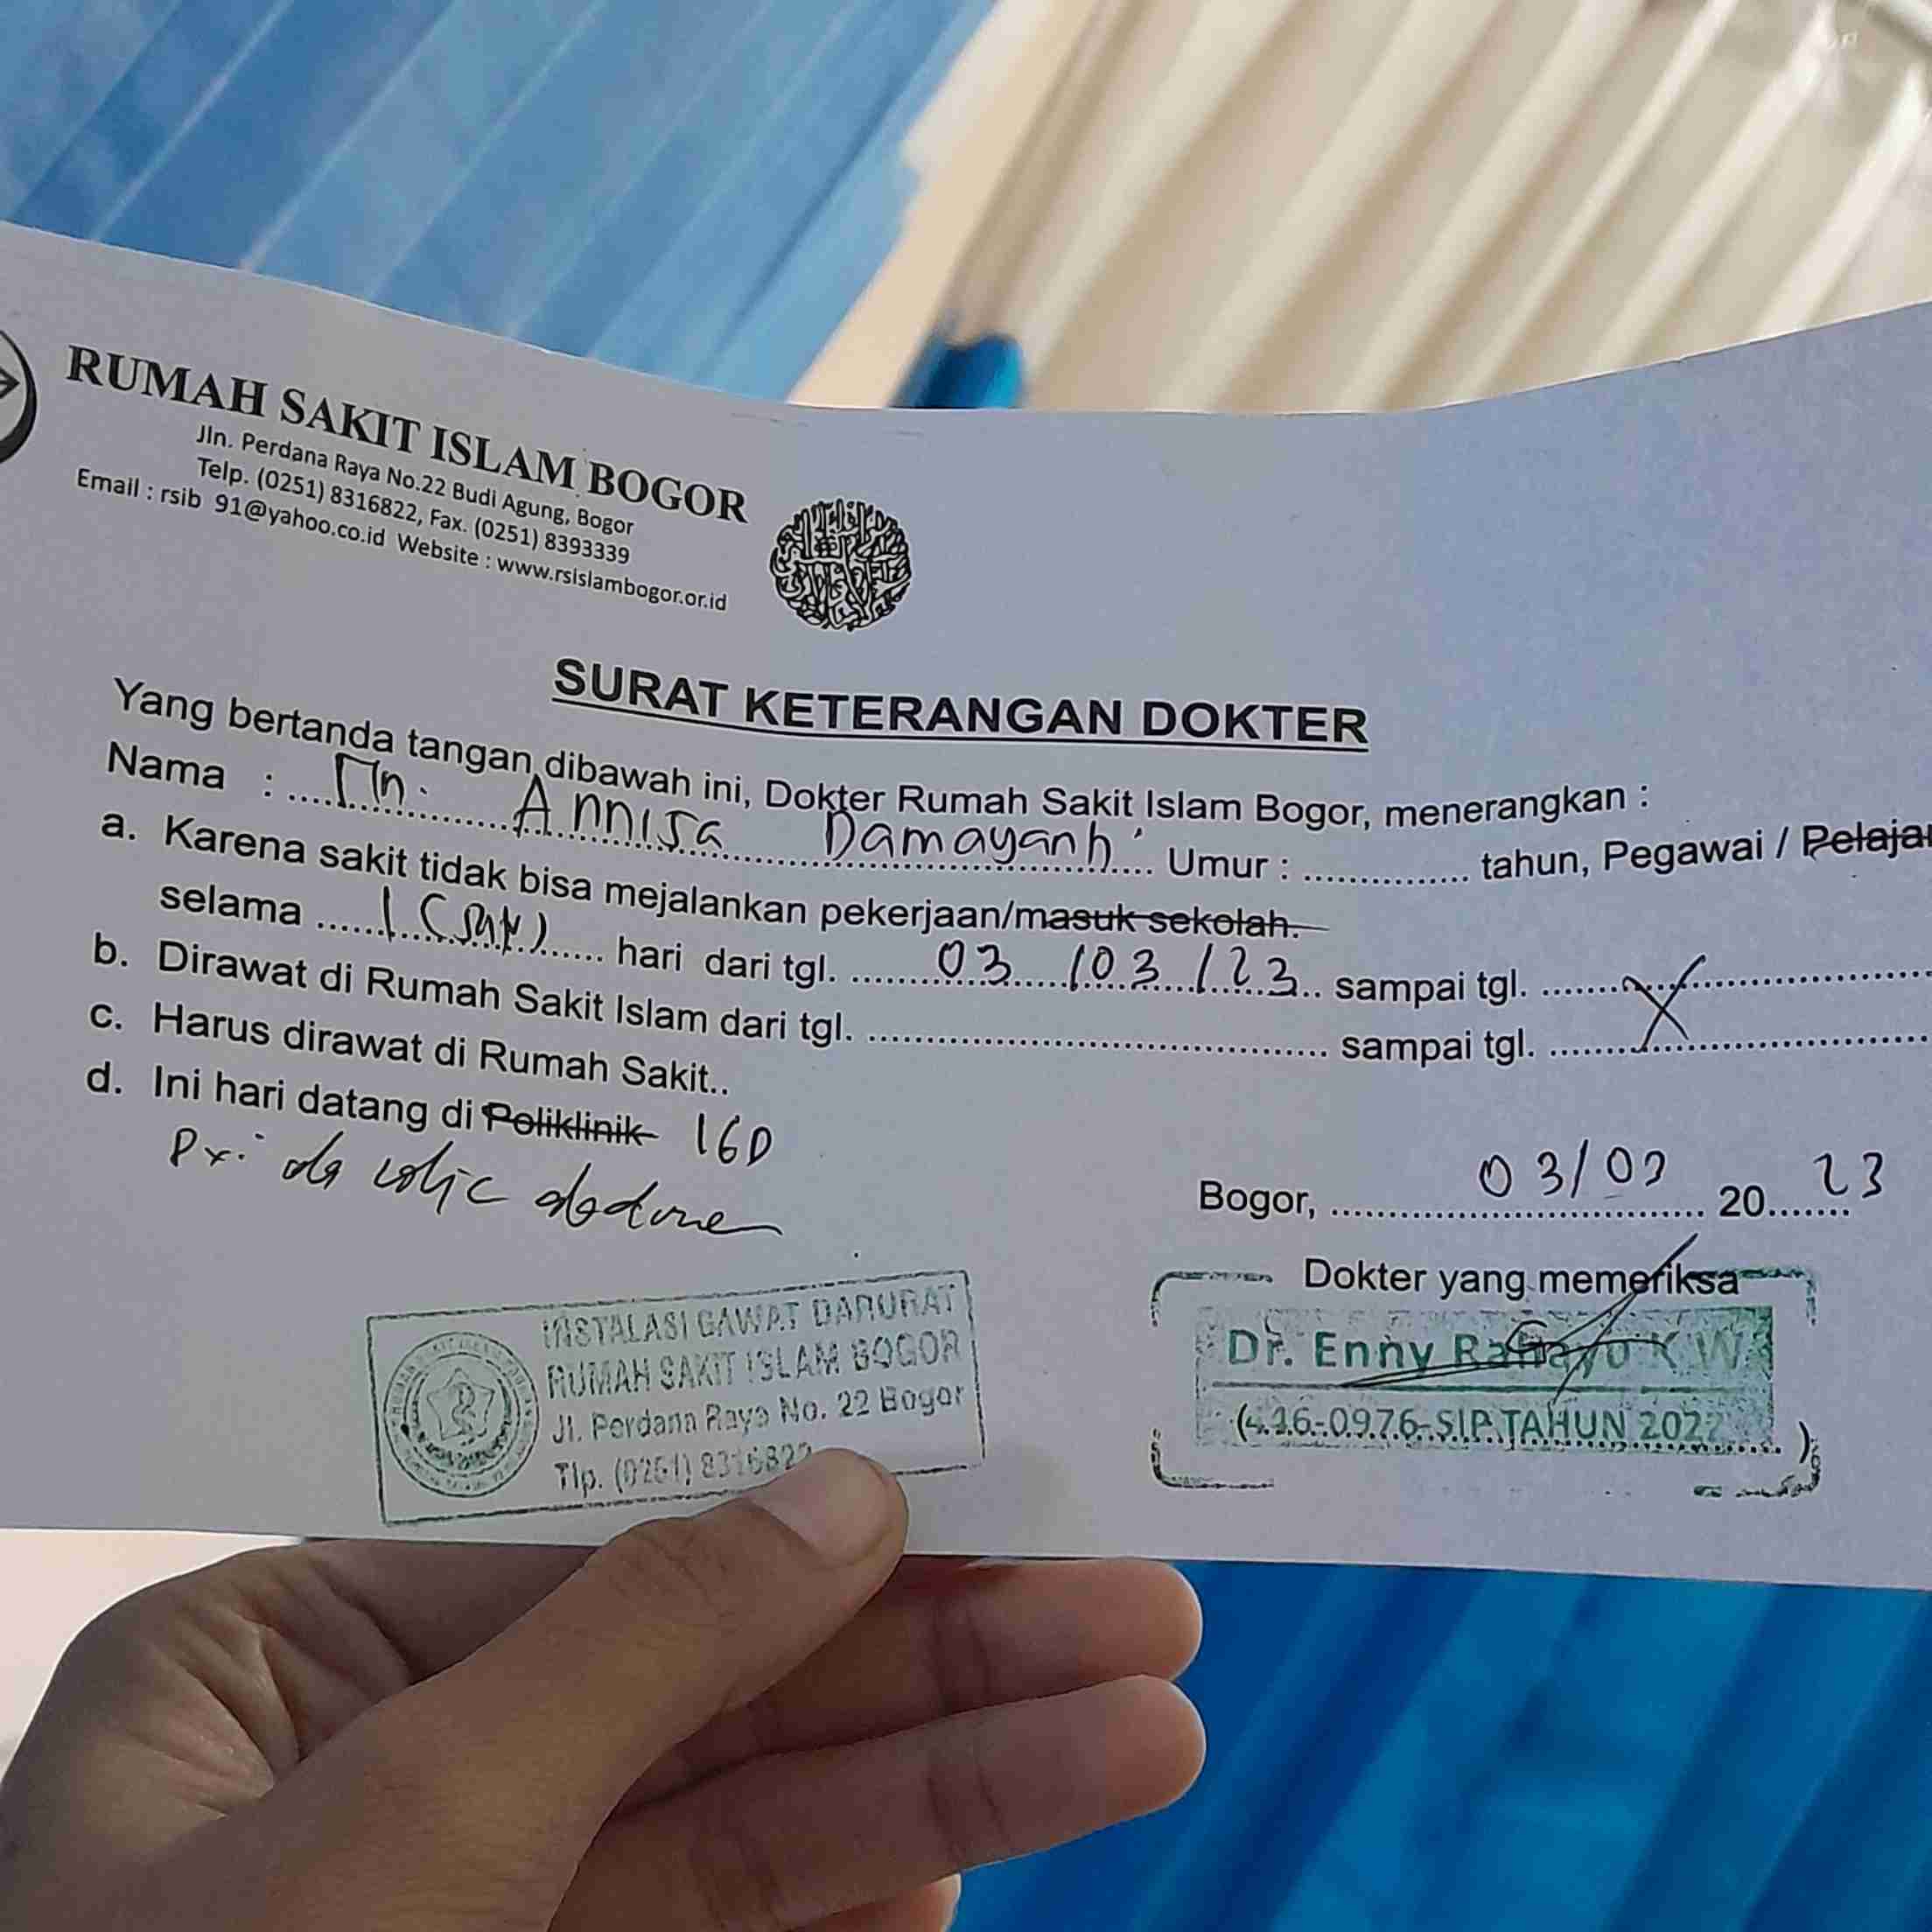 RUMAH SAKIT ISLAM BOGOR
Jln. Perdana Raya No.22 Budi Agung, Bogor
Telp. (0251) 8316822, Fax. (0251) 8393339
Email : rsib 91@yahoo.co.id Website : www.rsislambogor.or.id
SURAT KETERANGAN DOKTER
Yang bertanda tangan dibawah ini, Dokter Rumah Sakit Islam Bogor, menerangkan :
Nama : Nn. Annisa Damayanti Umur : ............... tahun, Pegawai / Pelajar
a. Karena sakit tidak bisa mejalankan pekerjaan/masuk sekolah.
selama 1 (satu) hari dari tgl. 03/03/23 sampai tgl. ...............
b. Dirawat di Rumah Sakit Islam dari tgl. ............... sampai tgl. ...............
c. Harus dirawat di Rumah Sakit..
d. Ini hari datang di Poliklinik IGD
colic abdomen
Bogor, 03/03 2023
Dokter yang memeriksa
INSTALASI GAWAT DARURAT
RUMAH SAKIT ISLAM BOGOR
Jl. Perdana Raya No. 22 Bogor
Tlp. (0251) 8316822
Dr. Enny Rahayu K W
(446-0976-SIP.TAHUN 2022)